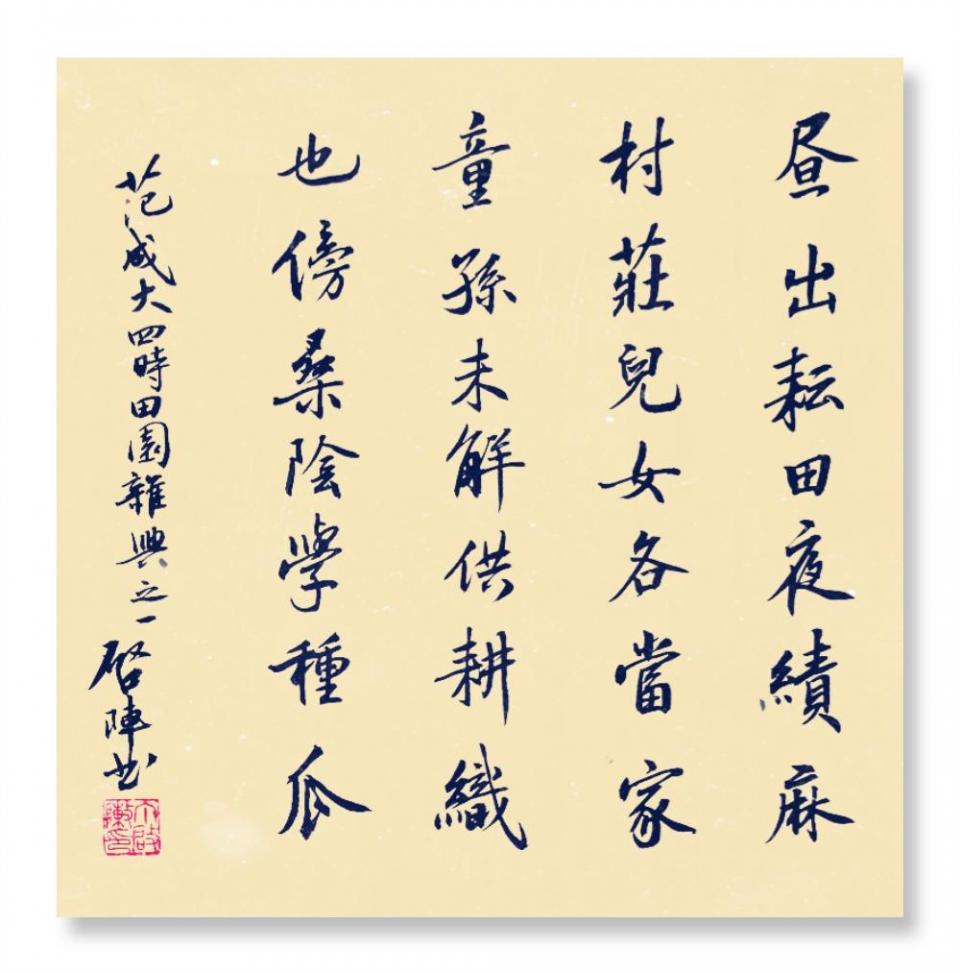 昼出耘田夜績麻
村莊兒女各當家
童孫未解供耕織
也傍桑陰學種瓜
范成大四時田園雜興之一
啓陣书